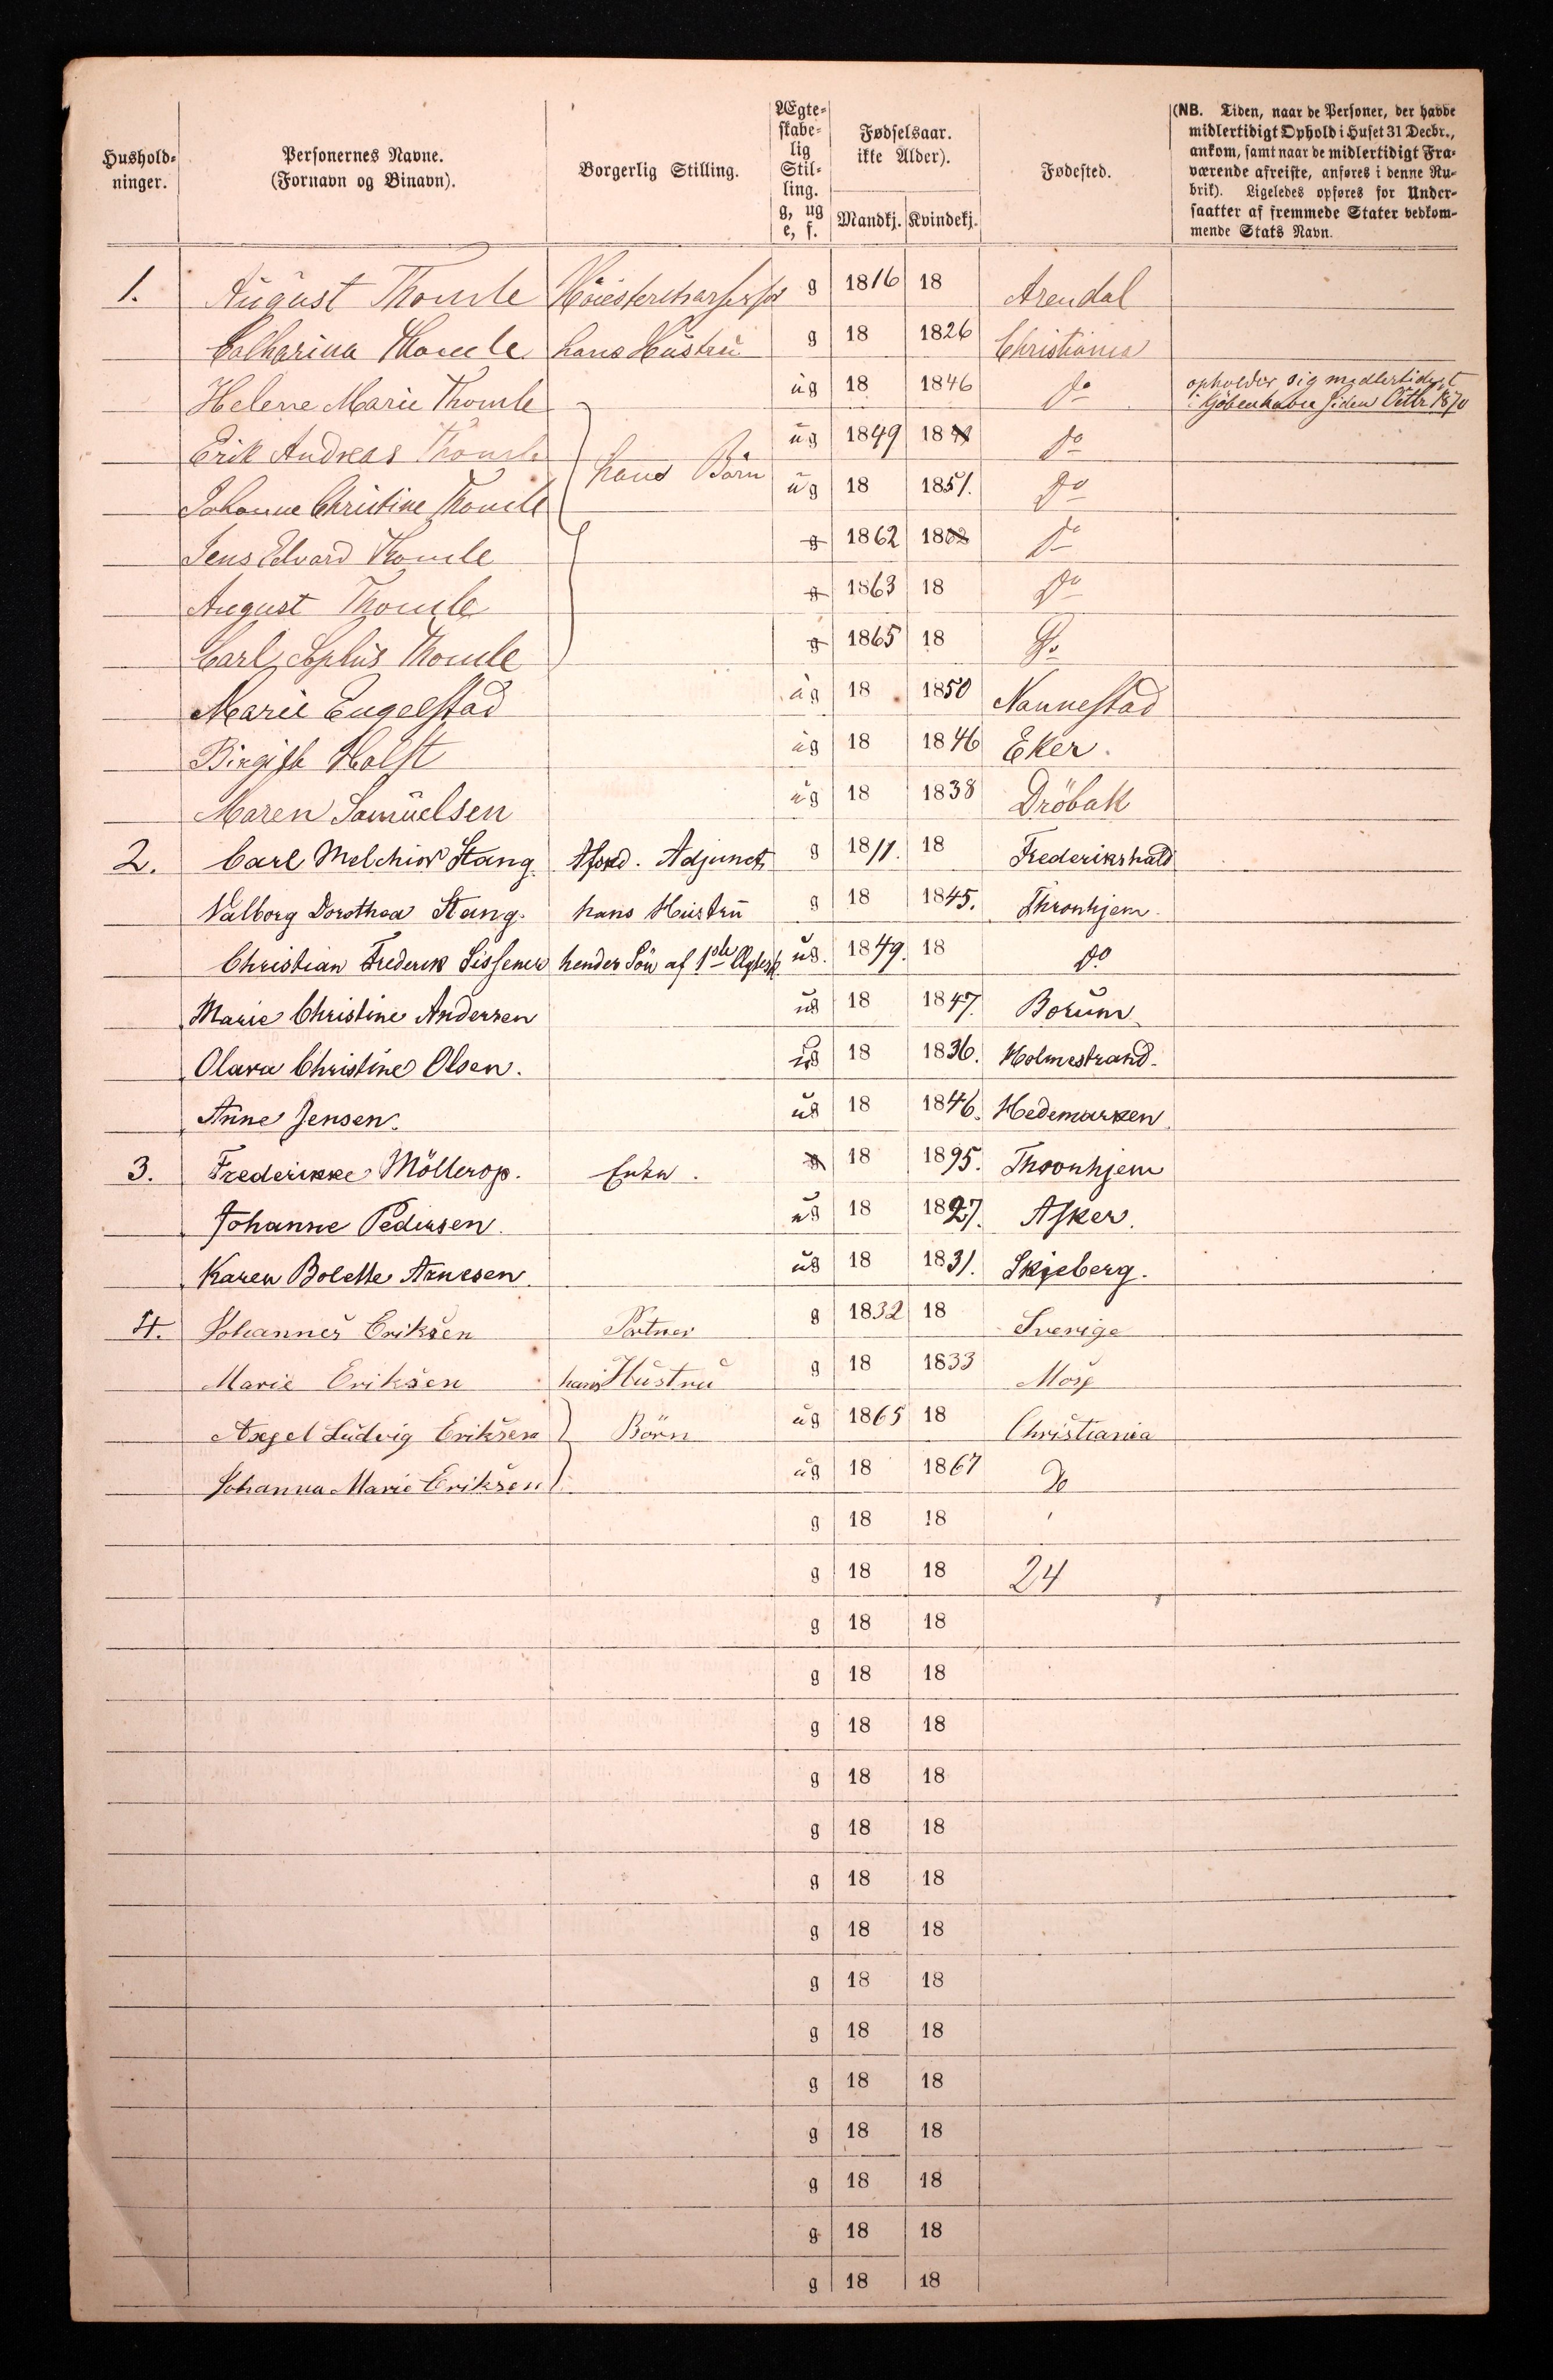 Hushold-
ninger.
Personernes Navne.
(Fornavn og Binavn).
Borgerlig Stilling.
Ægte-
skabe-
lig
Stil-
ling.
g, ug
e, f.
Fødselsaar.
ikke Alder).
Mandkj. Kvindekj.
Fødested.
(NB. Tiden, naar de Personer, der havde
midlertidigt Ophold i Huset 31 Decbr.,
ankom, samt naar de midlertidigt Fra-
værende afreiste, anføres i denne Ru-
brik). Ligeledes opføres for Under-
saatter af fremmede Stater vedkom-
mende Stats Navn.
1. August Thomle Høiesteretsassessor g 1816 18 Arendal
Catharina Thomle hans Hustru g 18 1826 Christiania
Helene Marie Thomle ug 18 1846 do opholder sig midlertidigt
i Kjöbenhavn siden 1870
Erik Andreas Thomle ug 1849 18 do
hans Börn
Johanne Christine Thomle ug 18 1851. do
Jens Edvard Thomle g 1862 1862 do
August Thomle g 1863 18 do
Carl Sophus Thomle g 1865 18 do
Marie Engelstad ug 18 1850 Nannestad
Holst ug 18 1846 Eker.
Maren Samuelsen ug 18 1838 Dröbak
2. Carl Melchior Stang. Afsked. Adjunct g 1811. 18 Frederikshald
Valborg Dorothea Stang. hans Hustru g 18 1845. Thronhjem.
Christian Frederik Sissener hendes Sön af 1ste Ægtesk. ug. 1849. 18 do
Marie Christine Andersen ug 18 1847. Borum
Olava Christine Olsen. ug 18 1836. Holmestrand.
Anne Jensen. ug 18 1846. Hedemarken.
3. Frederikke Möllerop. Enke. g 18 1895. Thronhjem
Johanne Pedersen. ug 18 1827. Asker.
Karen Bolette Arnesen. ug 18 1831. Skjeberg.
4. Johannes Eriksen Portner g 1832 18 Sverige
Marie Eriksen hans Hustru g 18 1833 Moss
Axel Ludvig Eriksen Börn ug 1865 18 Christiania
Johanna Marie Eriksen ug 18 1867 Do
g 18 18
g 18 18 24
g 18 18
g 18 18
g 18 18
g 18 18
g 18 18
g 18 18
g 18 18
g 18 18
g 18 18
g 18 18
g 18 18
g 18 18
g 18 18
g 18 18